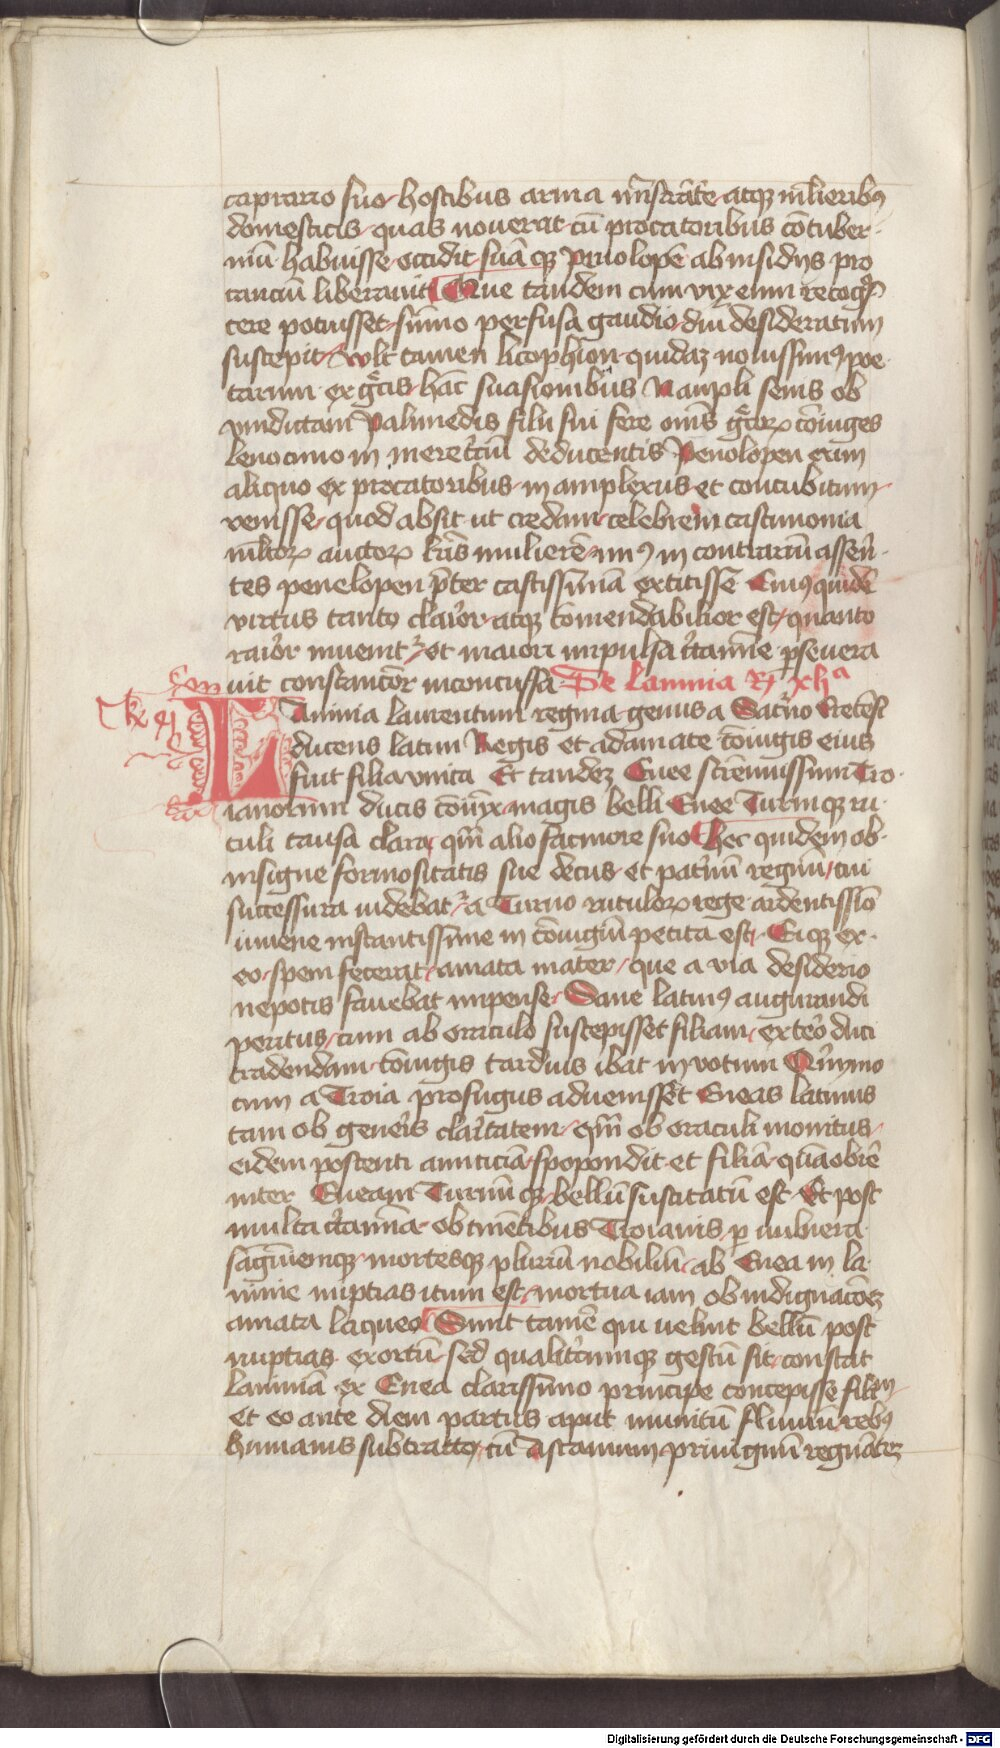 caprario suo hostibus arma mīstrāte atqꝫ mlieribꝰ
domesticis quas nouerat cū procatoribus cōtuber-
niū habuisse occidit suā qꝫ penolopē ab insidijs pro
tanciū liberauit Que tandem cum vix eum recog̅s
cere potuisset sūmo perfusa gaudio diu desideratum
suscepit Wlt tamen licophion quidaꝫ nouissimꝰ poe-
tarum ex grecis hāc suasionibus Naupli senis ob
vindictam Palimedis filij sui fere oms̄ grecorꝝ cōiuges
lenocinio in meretriciū deducentis Penolopen cum
aliquo ex procatoribus in amplexus et concubitum
venisse quod absit ut credam celebrem castimonia
mltorꝝ auctorꝝ lrīs mulierē vnꝰ in contrariū asserē-
tes penelopen preter castissimā extitisse Cuiꝰ quidē
virtus tanto clarior atqꝫ cōmendabilior est quanto
rarior inuenitur et maiori impulsa certamīe perseuera
uit constancior inconcussa De Lauinia R xlia
Lauinia laurentum regina genus a Saturno Cretēsi
ducens latini Regis et adamate cōiugis eius
fuit filia vnica Et tandeꝫ Enee strēnuissimi Tro-
ianorum ducis cōiunx magis belli Enee Turniqꝫ ru-
tuli causa clara qm̄ alio facinore suo hec quidem ob-
insigne formositatis sue decus et patriū regnū cui
successura uidebatur a Turno rutulorꝝ rege ardentissīo
iuuene instantissime in cōiugiū petita est Eiqꝫ ex-
eo spem fecerat amata mater que a via desiderio
nepotis fauebat impense Sane latinꝰ augurandi
peritus cum ab oraculo suscepisset filiam extero duci
tradendam cōiugis tardius ibat in votum Quīymo
cum a Troia profugus aduenisset Eneas latinus
tam ob generis claritatem qm̄ ob oraculi monitus
eidem poscenti amiticiā spopondit et filiā quāobrē
inter Eneam Turnū qꝫ bellū suscitatū est Et post
multa certamīa obtinētibus Troianis per uulnera
sagwemqꝫ mortesqꝫ plurium nobiliū ab Enea in la
uinie nuptias itum est mortua iam ob indignacōeꝫ
amata laqueo Sunt tamē qui uelint bellū post
nuptias exortū sed qualitercumqꝫ gestū sit constat
lauiniā ex Enea clarissimo principe concepisse filium
et eo ante diem partus aput munitū fluuiū rebꝰ
humanis subtracto cū Ascanium priuignū regnāteꝫ
Digitalisierung gefördert durch die Deutsche Forschungsgemeinschaft - DFG